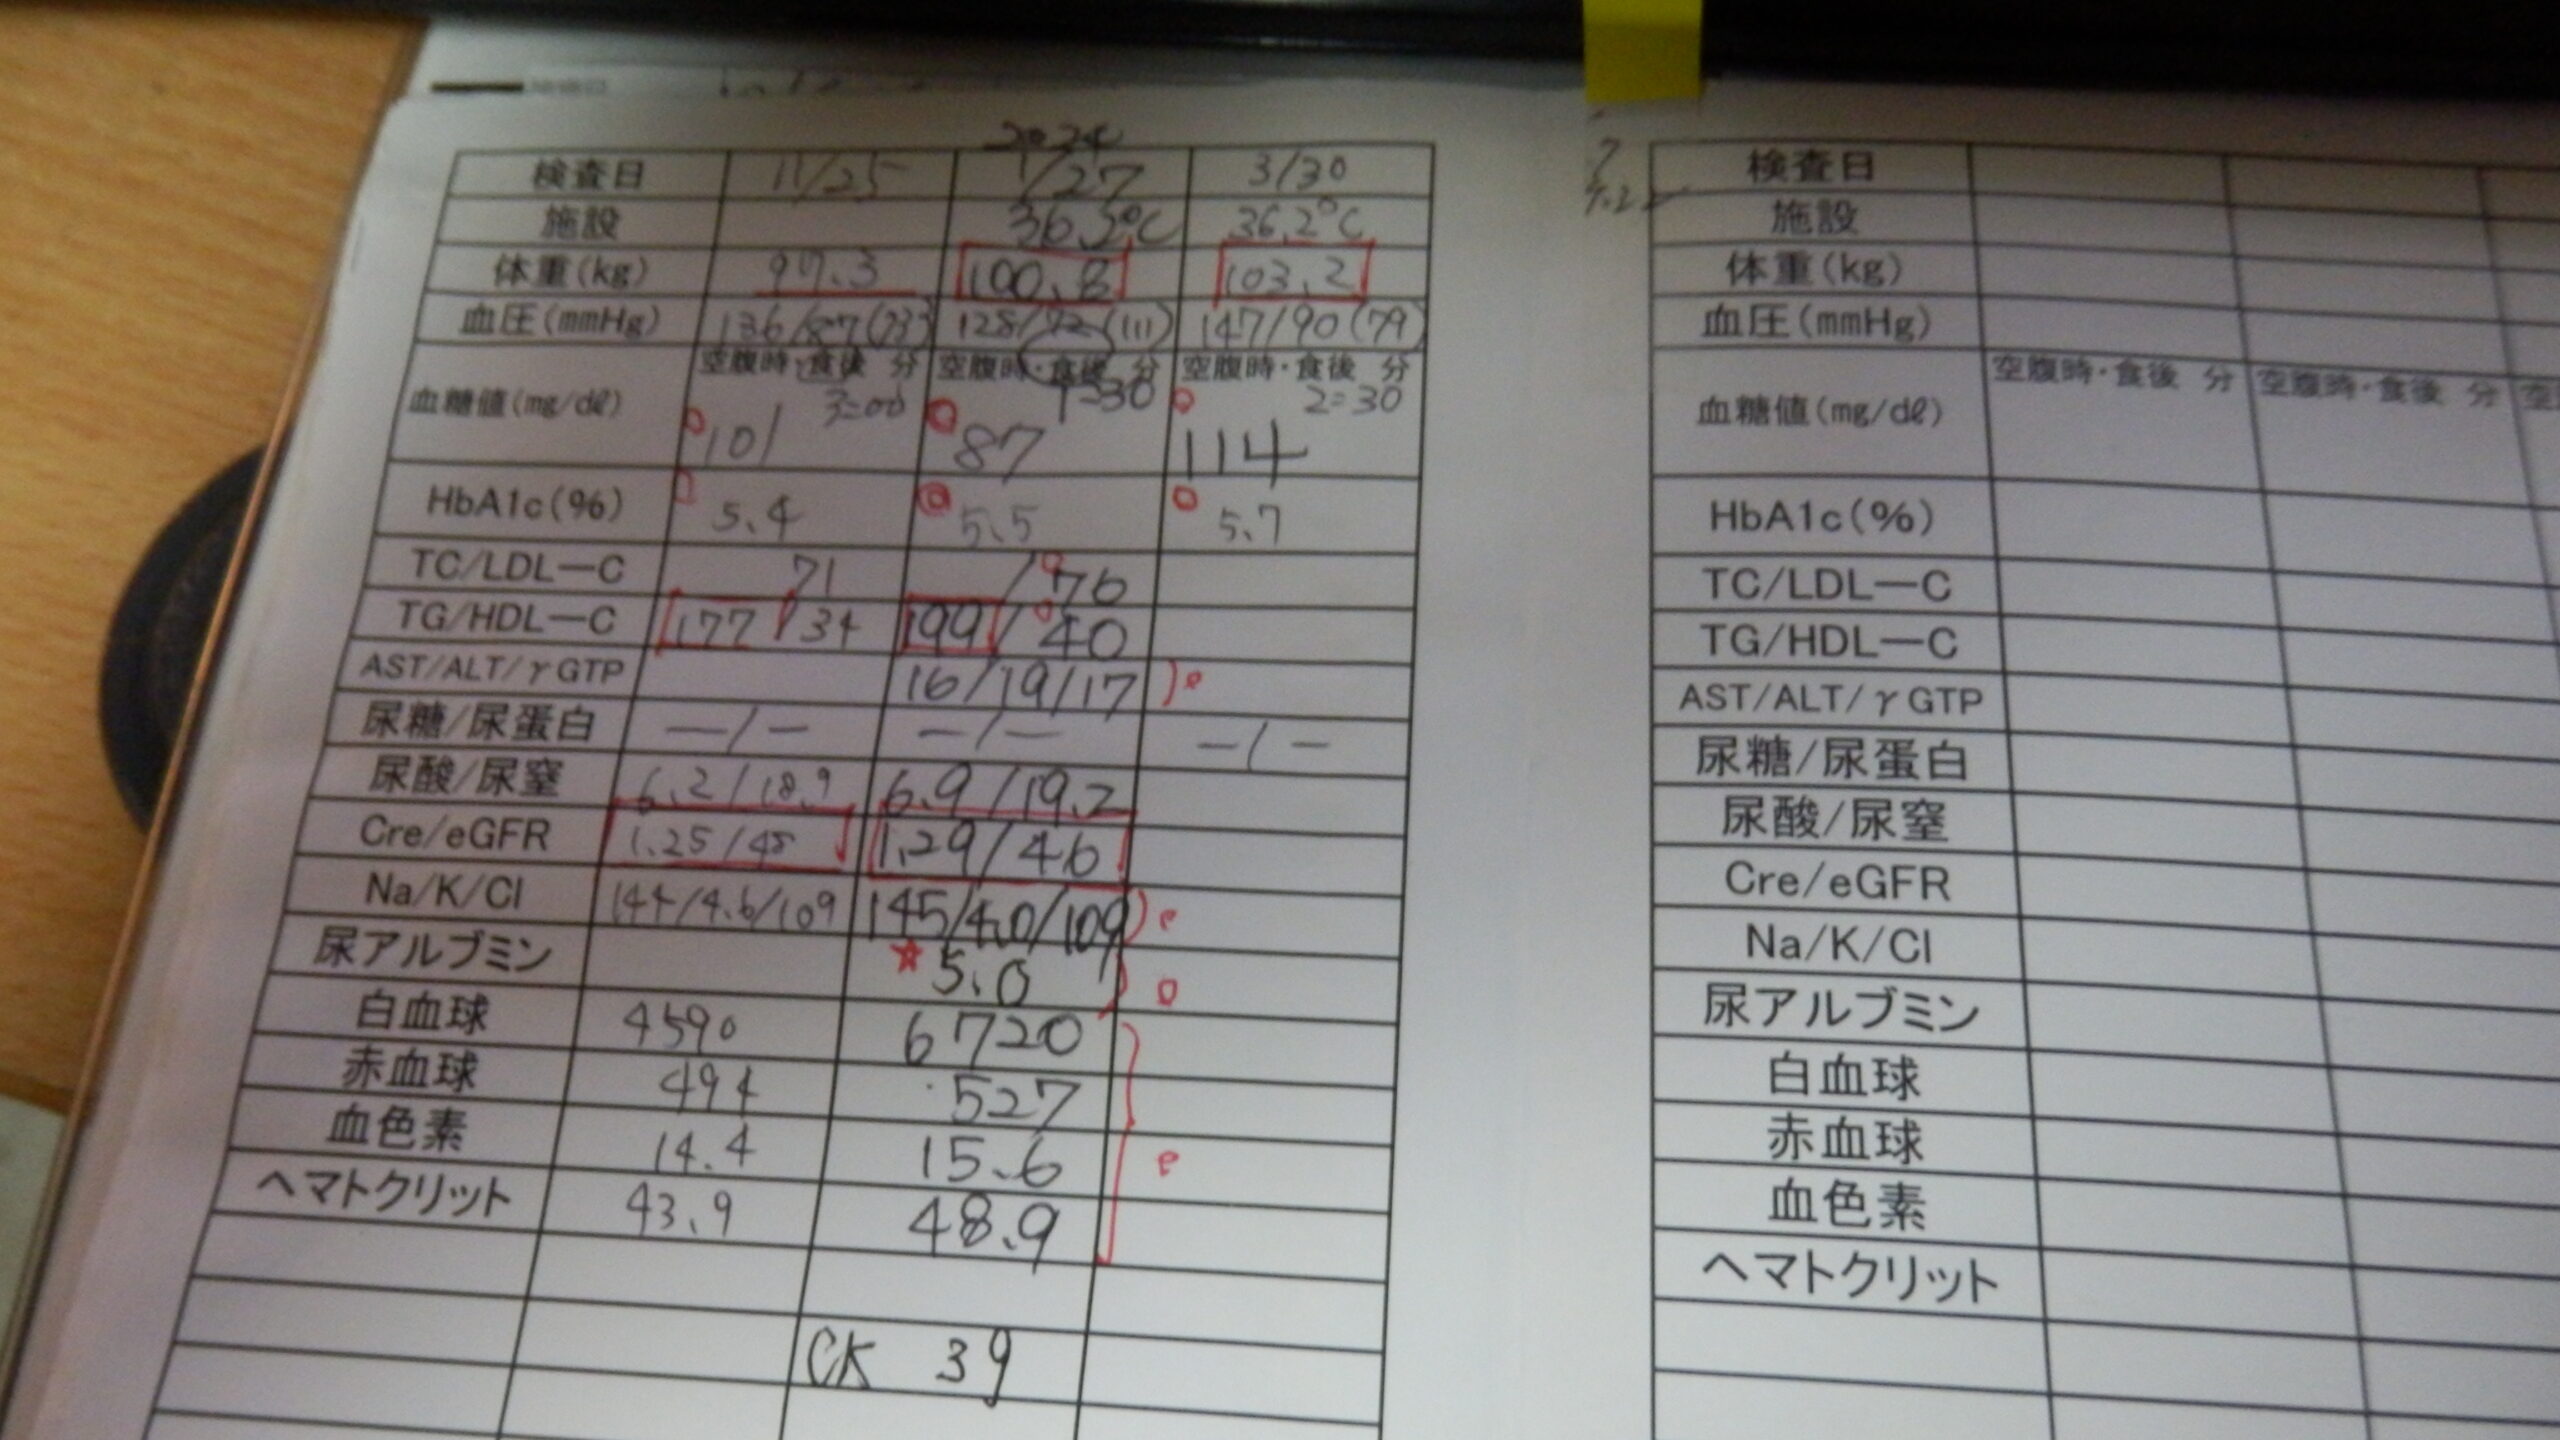 2024
検査日 11/25 1/27 3/30
施設 36.2℃ 36.2℃
体重(kg) 97.3 100.8 103.2
血圧(mmHg) 136/87(73) 128/92(111) 147/90(79)
空腹時・食後 分 空腹時・食後 分 空腹時・食後 分
3=00 1=30 2=30
血糖値(mg/dℓ) 101 87 114
HbA1c(%) 5.4 5.5 5.7
TC/LDL－C 71 /76
TG/HDL－C 177/34 199/40
AST/ALT/γGTP 16/19/17
尿糖/尿蛋白 －/－ －/－ －/－
尿酸/尿窒 6.2/18.9 6.9/19.2
Cre/eGFR 1.25/48 1.29/46
Na/K/Cl 144/4.6/109 145/4.0/109
尿アルブミン ☆5.0
白血球 4590 6720
赤血球 494 527
血色素 14.4 15.6
ヘマトクリット 43.9 48.9
CK 39
検査日
施設
体重(kg)
血圧(mmHg)
空腹時・食後 分 空腹時・食後 分 空
血糖値(mg/dℓ)
HbA1c(%)
TC/LDL－C
TG/HDL－C
AST/ALT/γGTP
尿糖/尿蛋白
尿酸/尿窒
Cre/eGFR
Na/K/Cl
尿アルブミン
白血球
赤血球
血色素
ヘマトクリット